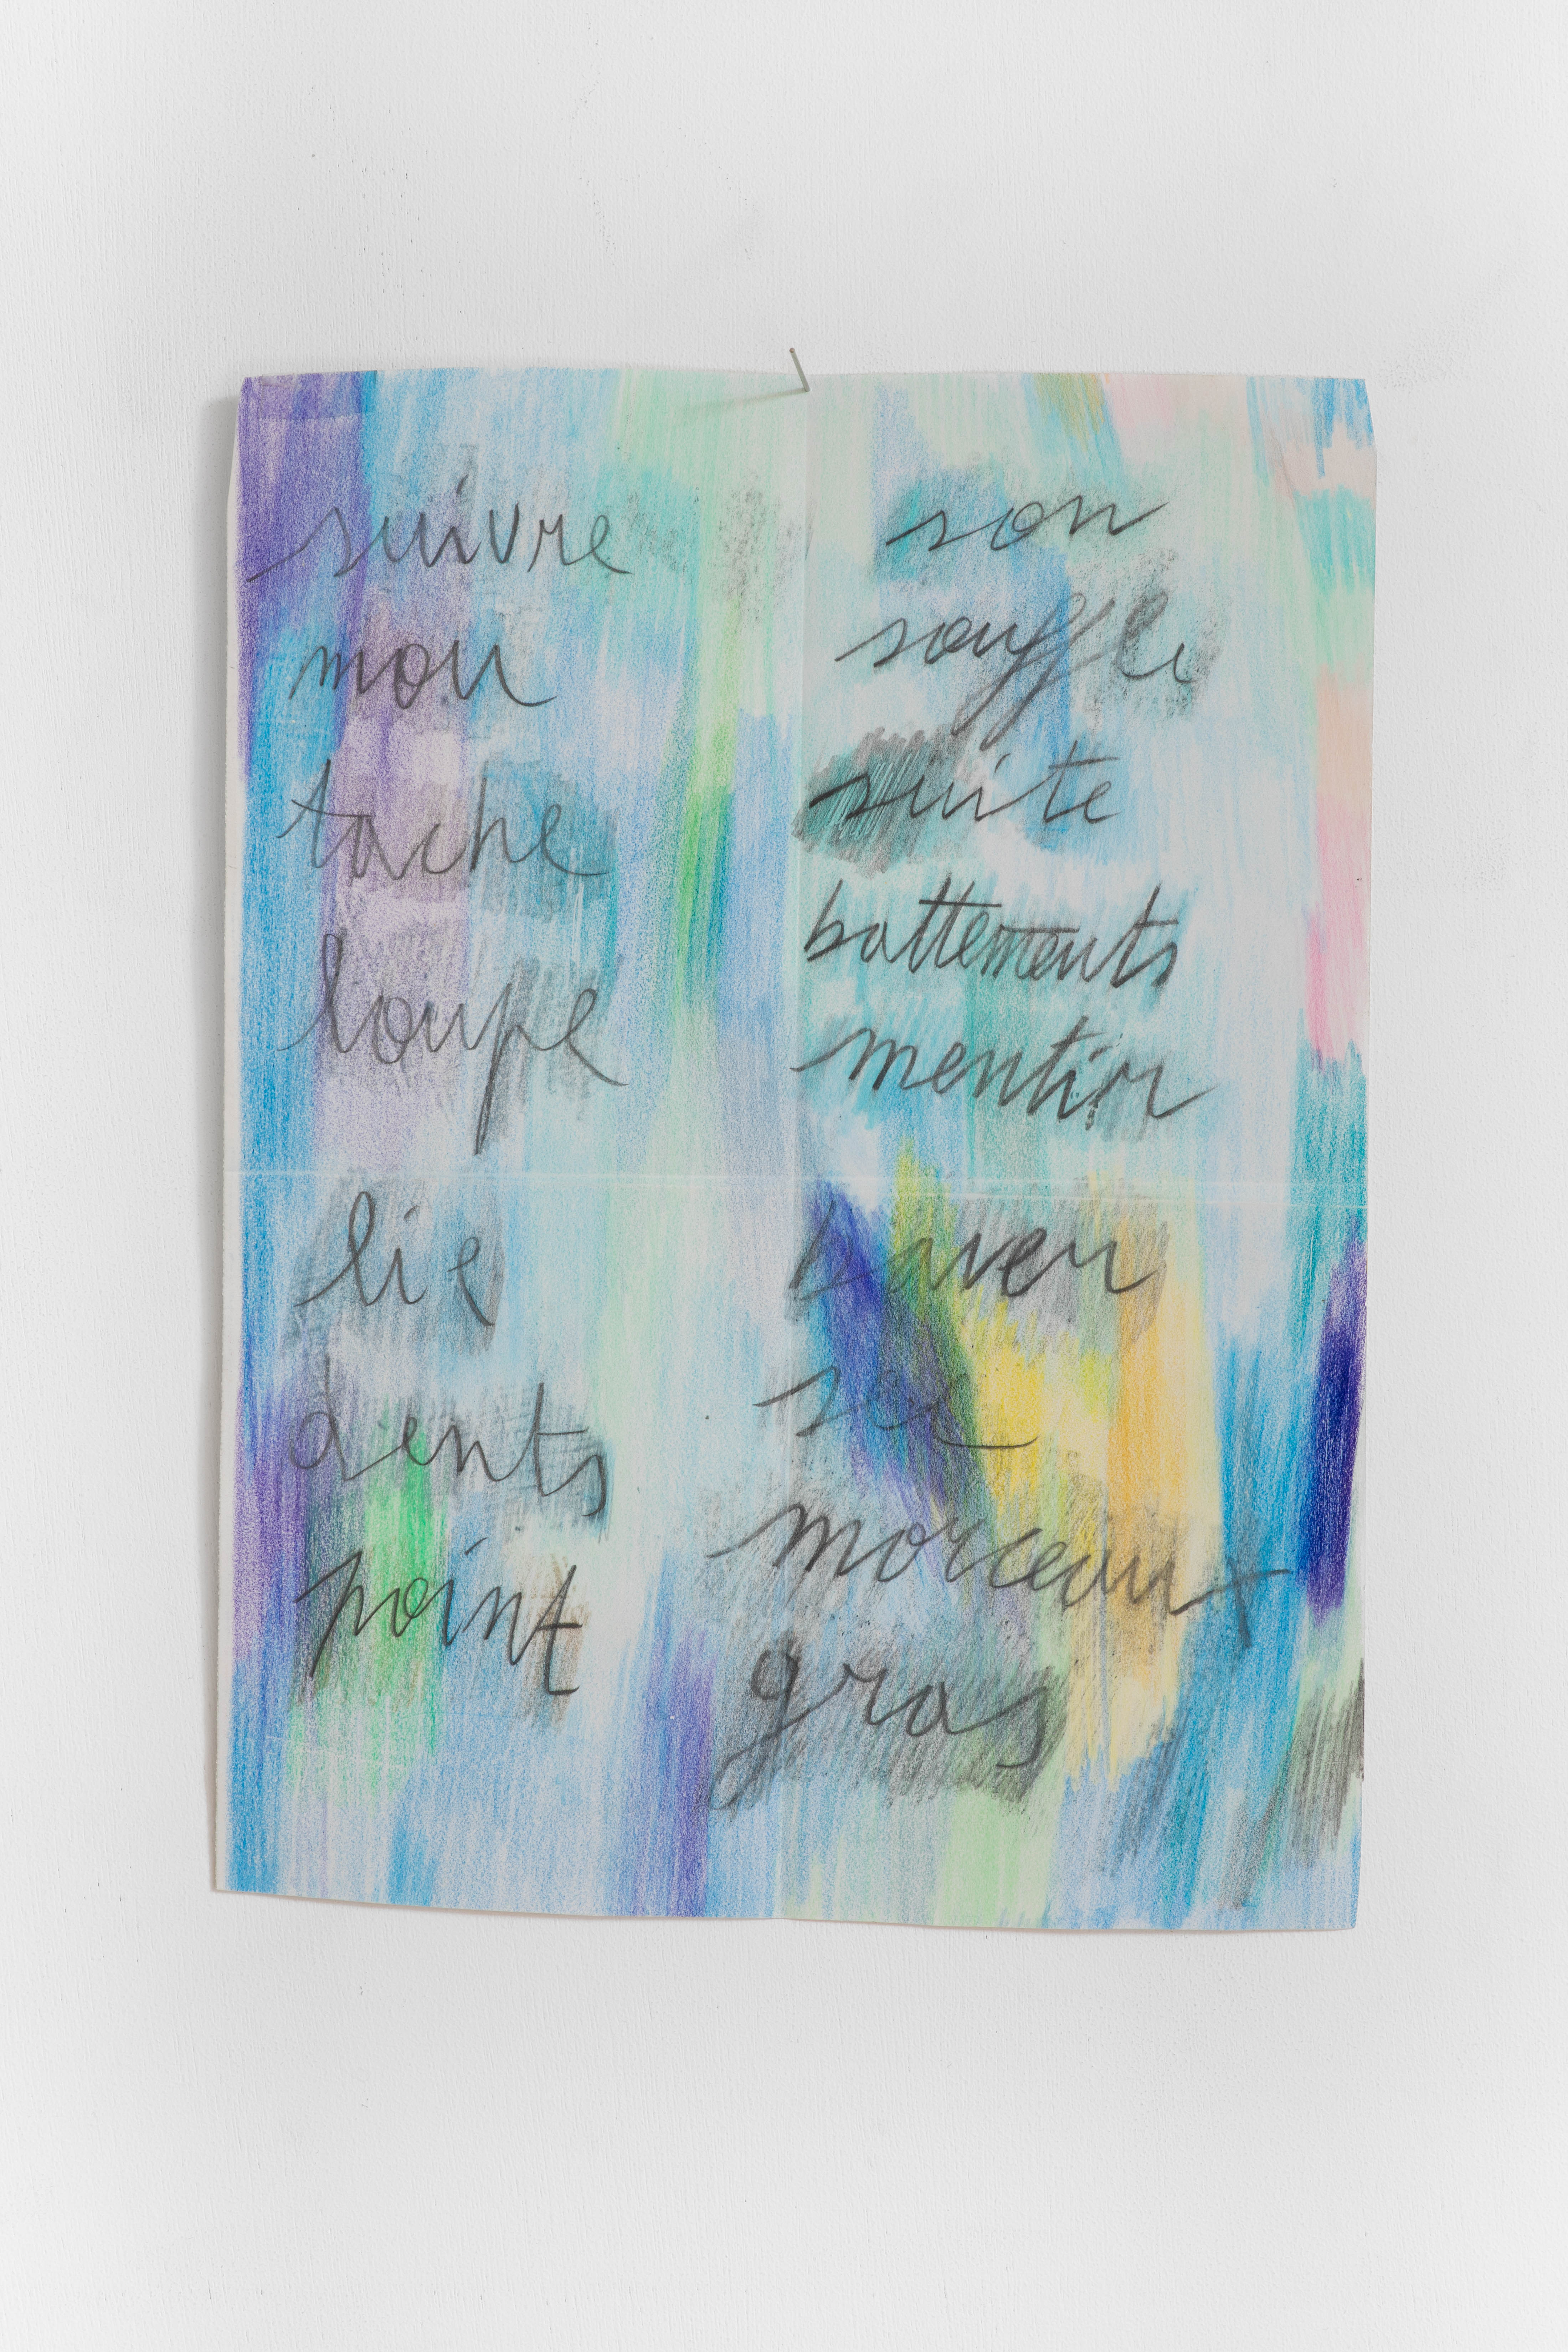 suivre
mon
tache
loupe
lie
dents
point
son
souffle
suite
battements
mentir
baver
ses
morceaux
gras